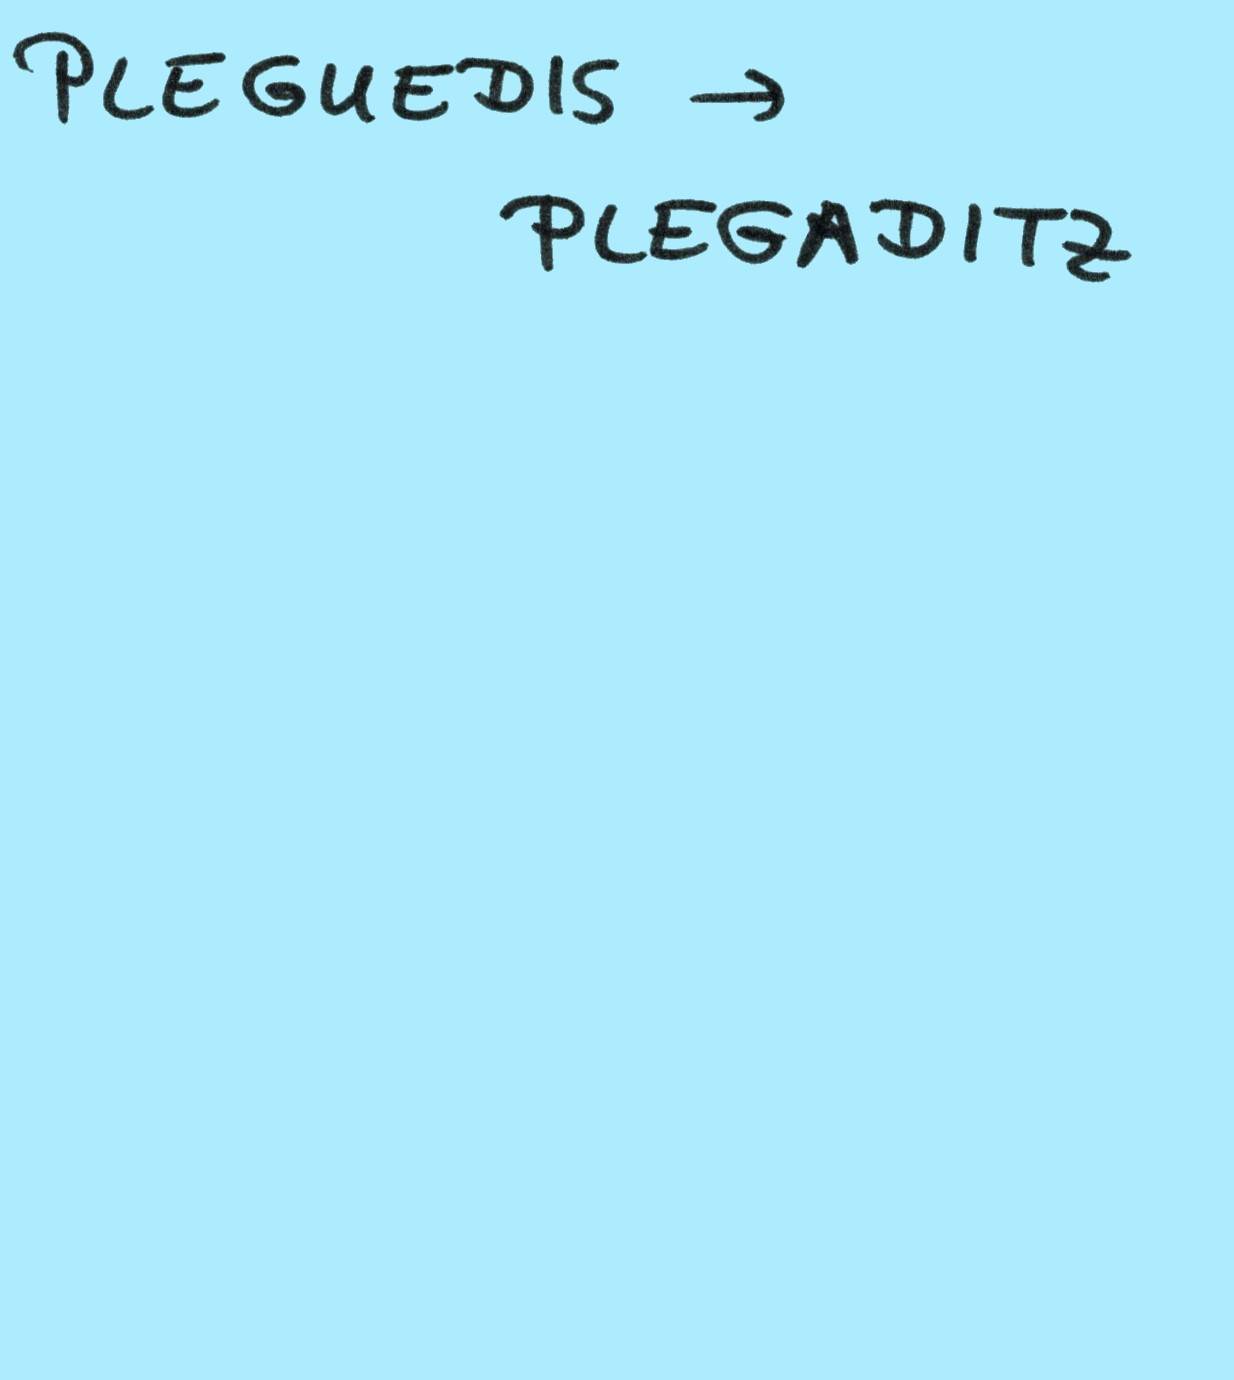 PLEGUEDIS →
PLEGADITZ